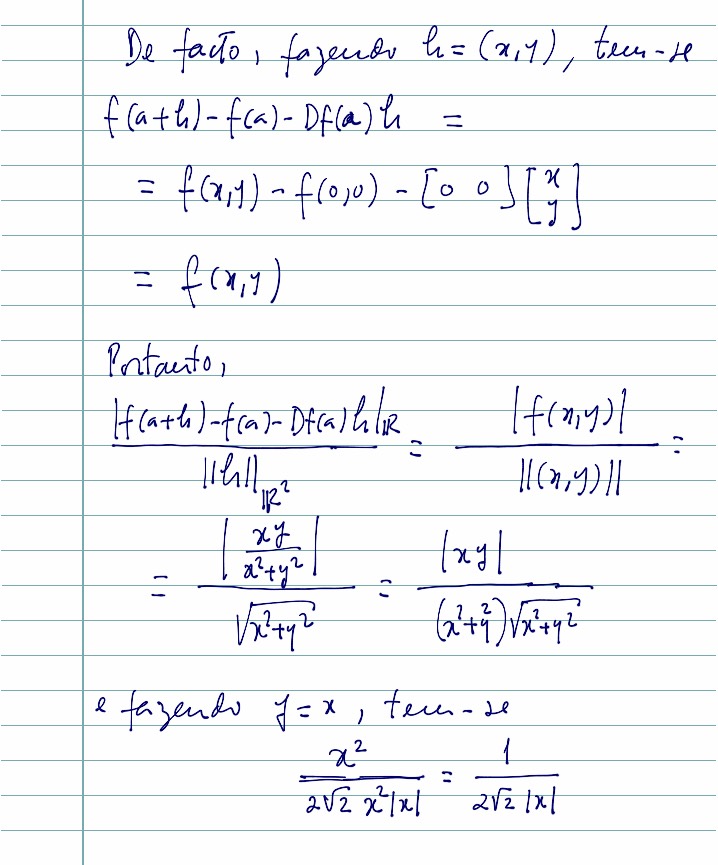 De facto, fazendo h = (x,y), tem-se
f(a+h) - f(a) - Df(a)h =
= f(x,y) - f(0,0) - [0 0] [x y]
= f(x,y)
Portanto,
|f(a+h) - f(a) - Df(a)h|_ℝ / ||h||_ℝ² = |f(x,y)| / ||(x,y)|| =
= |xy / (x²+y²)| / √(x²+y²) = |xy| / ((x²+y²)√(x²+y²))
e fazendo y = x, tem-se
x² / (2√2 x²|x|) = 1 / (2√2 |x|)